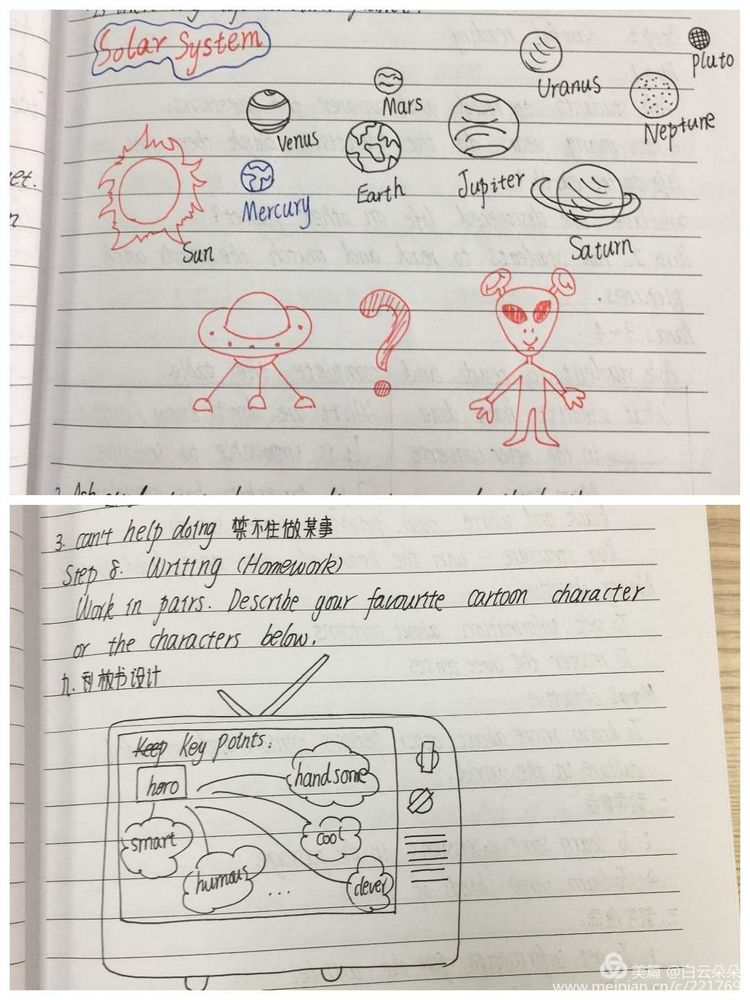 Solar System
Uranus
pluto
Mars
Venus
Neptune
Earth
Jupiter
Mercury
Sun
Saturn
3. can't help doing 禁不住做某事
Step 8. Writing (Homework)
Work in pairs. Describe your favourite cartoon character
or the characters below.
九. 板书设计
Key points:
hero
handsome
smart
cool
humous
...
clever
美篇 @白云朵朵
www.meipian.cn/c/221769